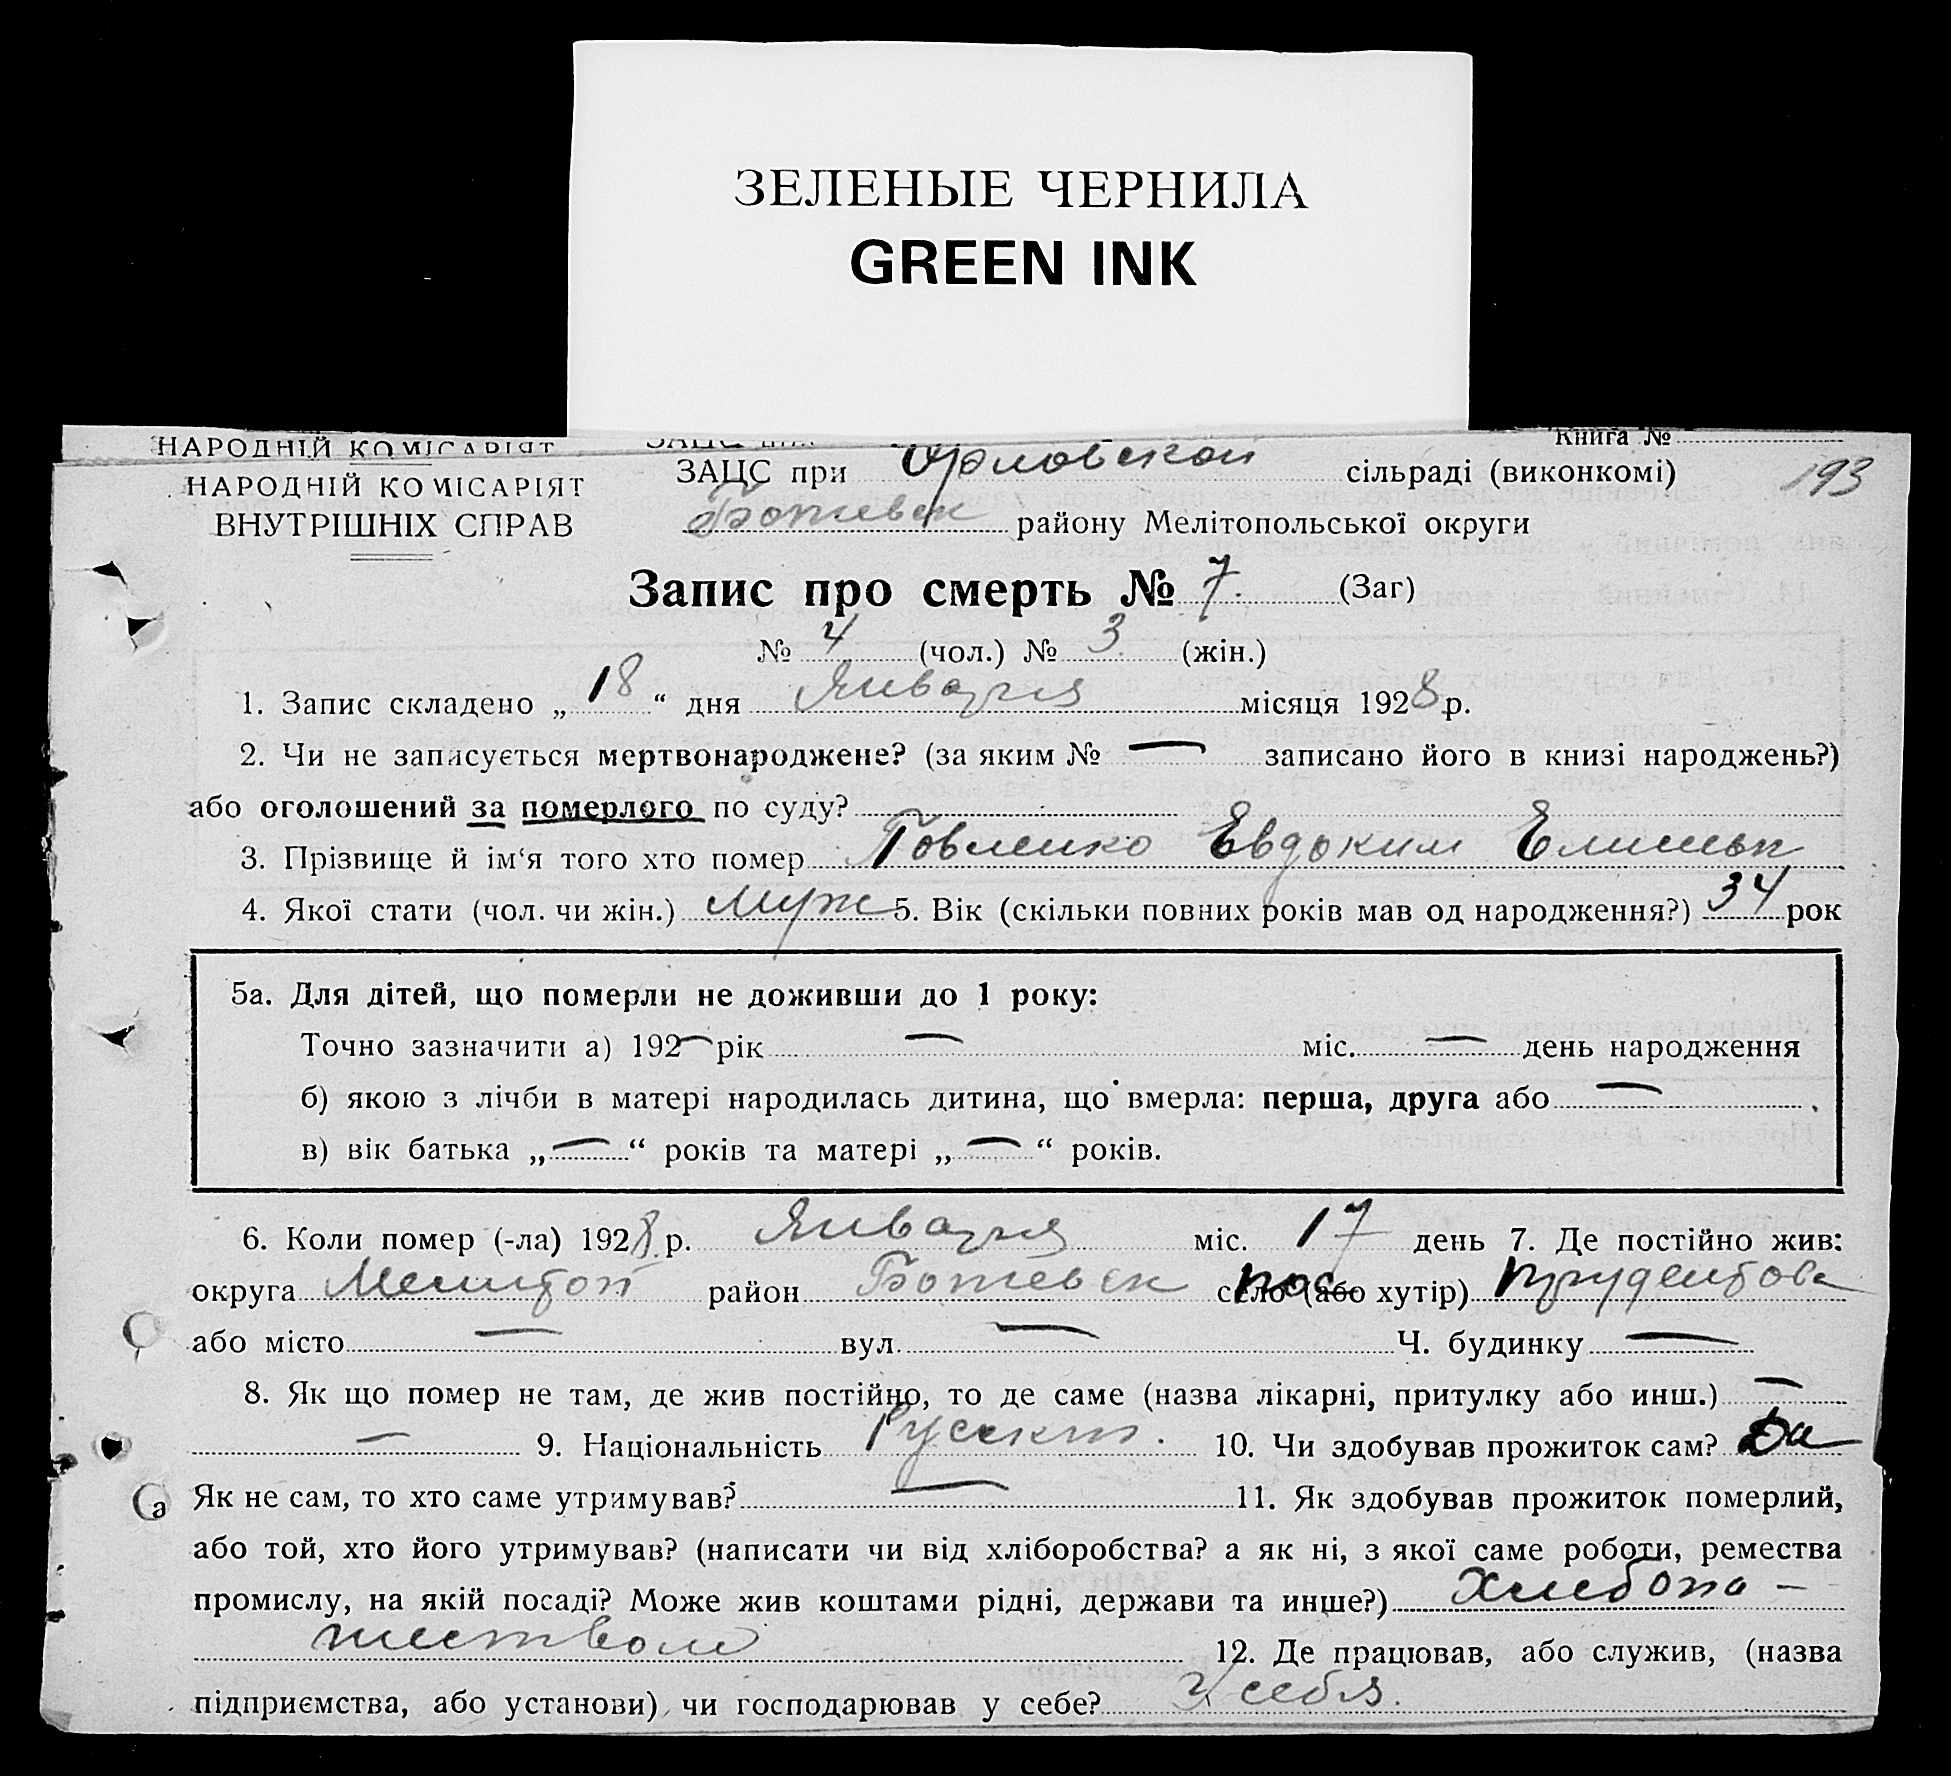 ЗЕЛЕНЫЕ ЧЕРНИЛА
GREEN INK
НАРОДНІЙ КОМІСАРІЯТ
Книга №
ЗАЦС при Орловской сільраді (виконкомі) 193
НАРОДНІЙ КОМІСАРІЯТ
ВНУТРІШНІХ СПРАВ
Ботиевск району Мелітопольської округи
Запис про смерть № 7. (Заг)
№ 4 (чол.) № 3 (жін.)
1. Запис складено „18“ дня Января місяця 1928 р.
2. Чи не записується мертвонароджене? (за яким № — записано його в книзі народжень?)
або оголошений за померлого по суду?
3. Прізвище й ім‘я того хто помер Евдоким
4. Якої стати (чол. чи жін.) Муж 5. Вік (скільки повних років мав од народження?) 34 рок
5а. Для дітей, що померли не доживши до 1 року:
Точно зазначити а) 192— рік — міс. — день народження
б) якою з лічби в матері народилась дитина, що вмерла: перша, друга або —
в) вік батька „—“ років та матері „—“ років.
6. Коли помер (-ла) 1928 р. Января міс. 17 день 7. Де постійно жив:
округа Мелитоп район Ботиевск село (або хутір) пос
або місто — вул. — Ч. будинку —
8. Як що помер не там, де жив постійно, то де саме (назва лікарні, притулку або инш.) —
— 9. Національність Русский. 10. Чи здобував прожиток сам? Да
Як не сам, то хто саме утримував? — 11. Як здобував прожиток померлий,
або той, хто його утримував? (написати чи від хліборобства? а як ні, з якої саме роботи, ремества
промислу, на якій посаді? Може жив коштами рідні, держави та инше?) Хлебопа-
шеством 12. Де працював, або служив, (назва
підприємства, або установи) чи господарював у себе? У себя.